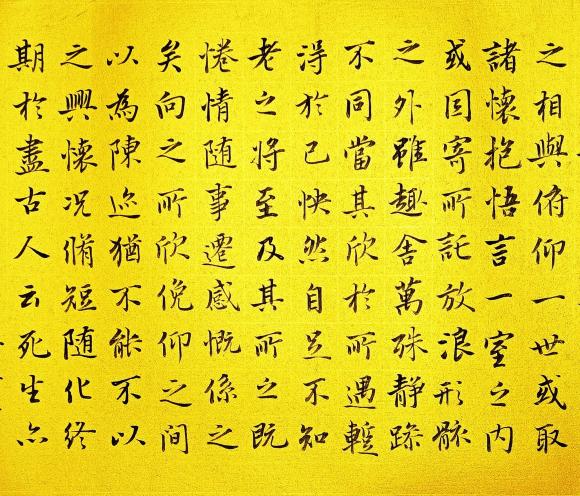 之相與俯仰一世或取
諸懷抱悟言一室之内
或因寄所託放浪形骸
之外雖趣舍萬殊静躁
不同當其欣於所遇蹔
得於己怏然自足不知
老之將至及其所之既
惓情随事遷感慨係之
矣向之所欣俛仰之間
以為陳迹猶不能不以
之興懷况脩短随化終
期於盡古人云死生亦